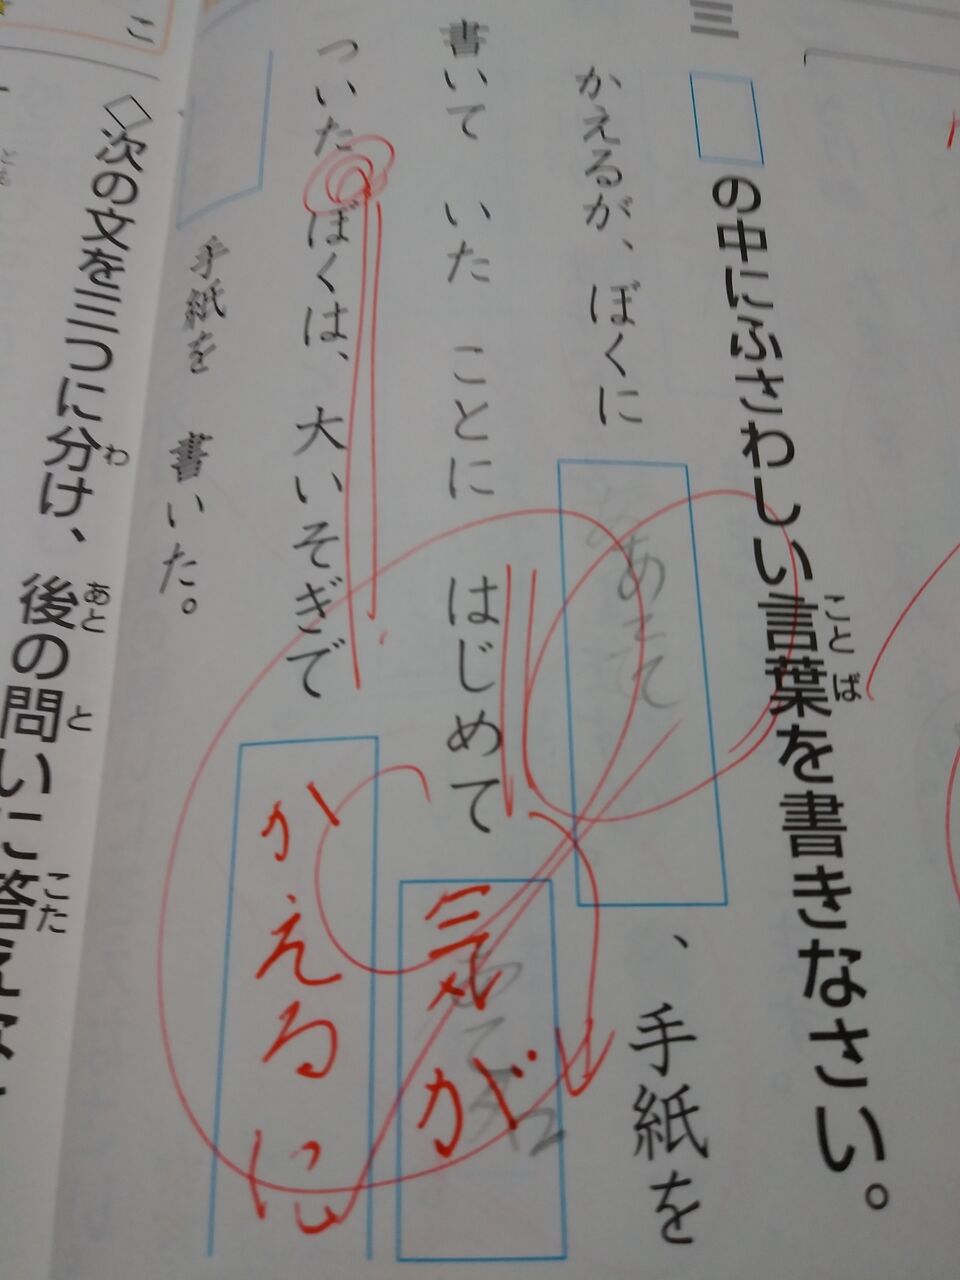 三
□の中にふさわしい言葉を書きなさい。
ことば
かえるが、ぼくに あてて 、手紙を
書いて いた ことに はじめて 気が
ついたぼくは、大いそぎで かえるに
手紙を 書いた。
◇次の文を三つに分け、後の問いに答えな
わ
あと
と
こた
こ